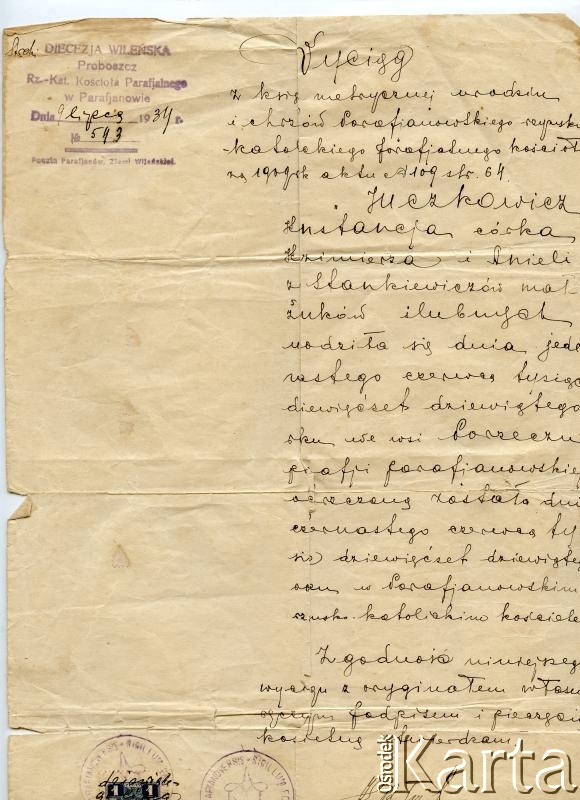 DIECEZJA WILEŃSKA
Proboszcz
Rz.-Kat. Kościoła Parafjalnego
w Parafjanowie
Dnia 9 lipca 1934 r.
№ 543
Poczta Parafjanów, Ziemi Wileńskiej.
Wyciąg
z księg metrycznej urodzin
i chrztów Parafianowskiego rzymsko
katolickiego parafjalnego kościoła
za 1909 rok aktu № 109 str. 64.
Juczkowicz
Konstancja córka
Kazimierza i Anieli
z Stankiewiczów mał
żonków ślubnych
urodziła się dnia jede
nastego czerwca tysiąc
dziewięćset dziewiątego
roku we wsi Porzecze
parafji parafjanowskiej
ochrzczona została dni
czternastego czerwca ty
siąc dziewięćset dziewiąteg
roku w Parafjanowskim
rzymsko-katolickim kościele
Zgodność niniejszego
wyciągu z oryginałem własno
ręcznym podpisem i pieczęcią
kościelną stwierdzam
SIGILLUM
1 1
SIGILLUM
Ośrodek
Karta